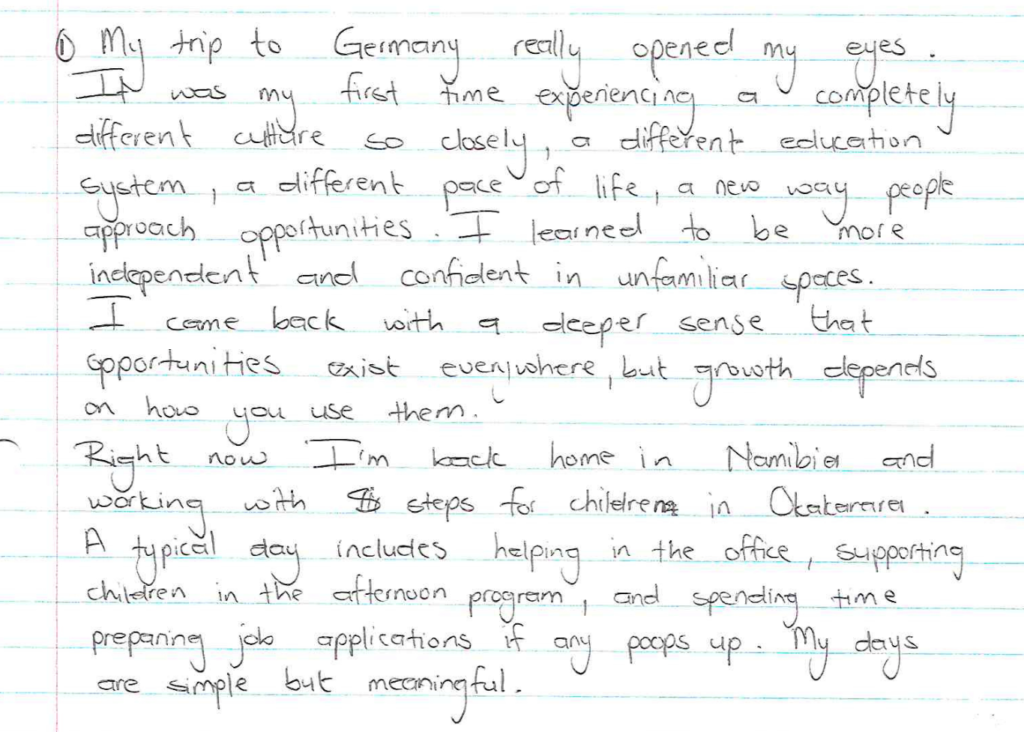 ① My trip to Germany really opened my eyes.
It was my first time experiencing a completely
different culture so closely, a different education
system, a different pace of life, a new way people
approach opportunities. I learned to be more
independent and confident in unfamiliar spaces.
I came back with a deeper sense that
opportunities exist everywhere, but growth depends
on how you use them.
Right now I'm back home in Namibia and
working with steps for children in Okakarara.
A typical day includes helping in the office, supporting
children in the afternoon program, and spending time
preparing job applications if any poops up. My days
are simple but meaningful.